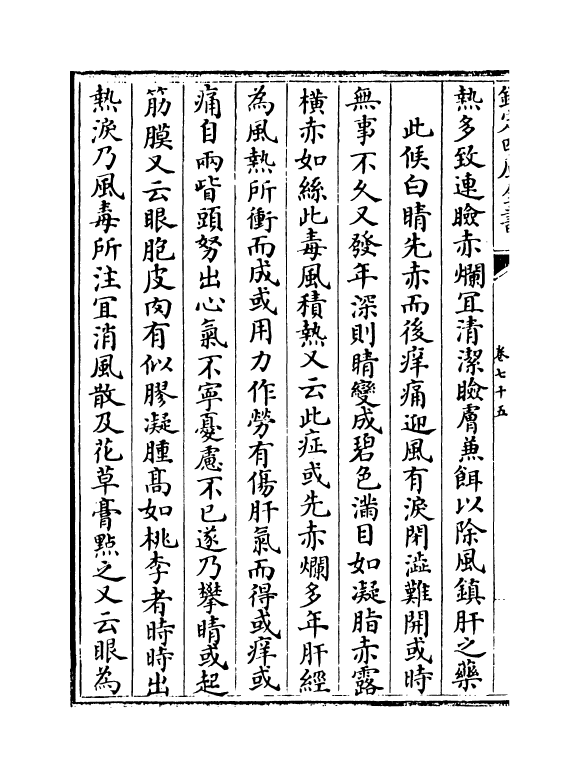 欽定四庫全書
卷七十五
熱多致連瞼赤爛宜清潔瞼膚兼餌以除風鎮肝之藥
此候白睛先赤而後痒痛迎風有淚閉澁難開或時
無事不久又發年深則睛變成碧色滿目如凝脂赤露
橫赤如絲此毒風積熱又云此症或先赤爛多年肝經
為風熱所衝而成或用力作勞有傷肝氣而得或痒或
痛自兩眥頭努出心氣不寧憂慮不已遂乃攀睛或起
筋膜又云眼胞皮肉有似膠凝腫髙如桃李者時時出
熱淚乃風毒所注宜消風散及花草膏㸃之又云眼為